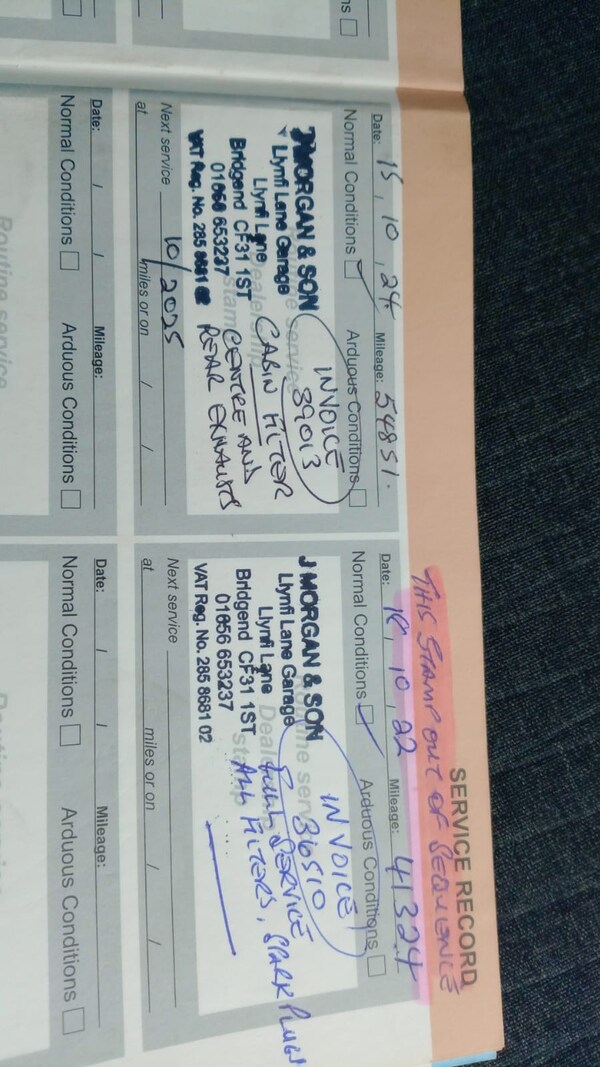 SERVICE RECORD
THIS STAMP OUT OF SEQUENCE
Date: 15, 10, 24 Mileage: 54851.
Normal Conditions Arduous Conditions
INVOICE
39013
J MORGAN & SON
Llynfi Lane Garage
Llynfi Lane
Bridgend CF31 1ST
01656 653237
VAT Reg. No. 285 8681 02
CABIN FILTER
CENTRE AND
REAR EXHAUSTS
Next service 10/2025
at miles or on / /
Date: 10, 22 Mileage: 41324
Normal Conditions Arduous Conditions
INVOICE
36510
J MORGAN & SON
Llynfi Lane Garage
Llynfi Lane
Bridgend CF31 1ST
01656 653237
VAT Reg. No. 285 8681 02
FULL SERVICE
ALL FILTERS, SPARK PLUGS
Next service
at miles or on / /
Date: / / Mileage:
Normal Conditions Arduous Conditions
Routine service
Date: / / Mileage:
Normal Conditions Arduous Conditions